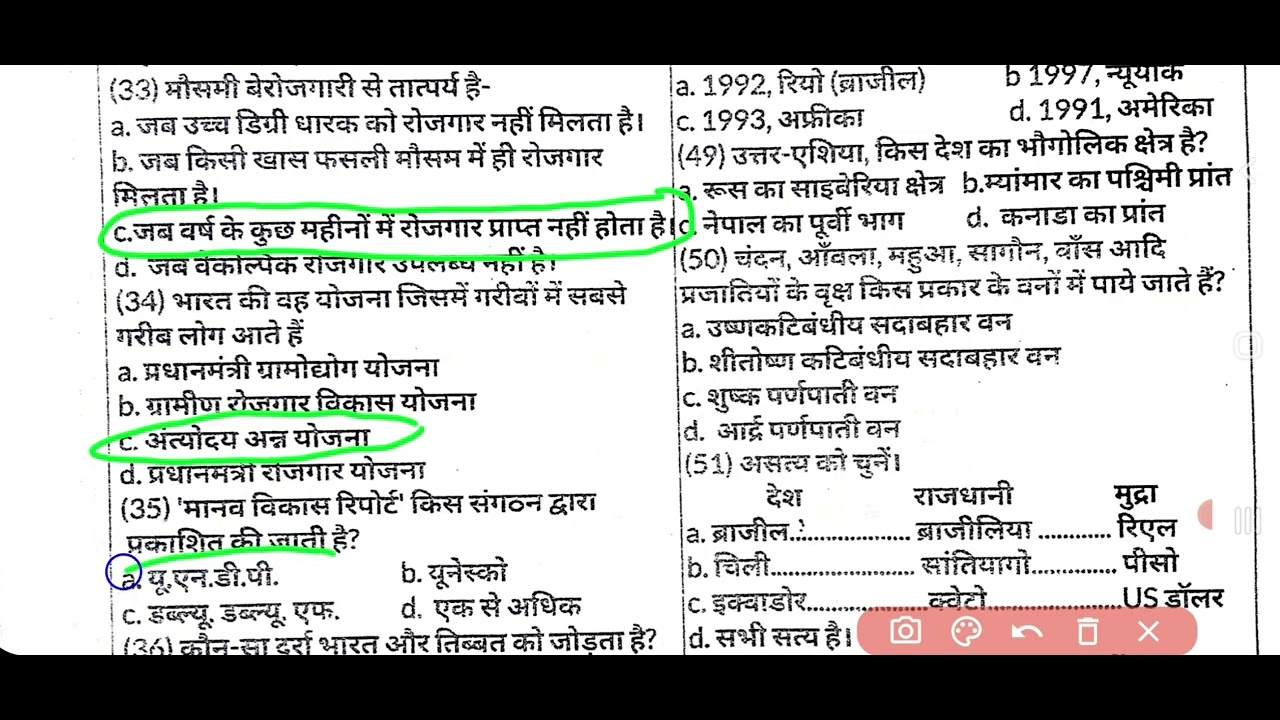 (33) मौसमी बेरोजगारी से तात्पर्य है-
a. जब उच्च डिग्री धारक को रोजगार नहीं मिलता है।
b. जब किसी खास फसली मौसम में ही रोजगार
मिलता है।
c.जब वर्ष के कुछ महीनों में रोजगार प्राप्त नहीं होता है।
d. जब वैकल्पिक रोजगार उपलब्ध नहीं है।
(34) भारत की वह योजना जिसमें गरीबों में सबसे
गरीब लोग आते हैं
a. प्रधानमंत्री ग्रामोद्योग योजना
b. ग्रामीण रोजगार विकास योजना
c. अंत्योदय अन्न योजना
d. प्रधानमंत्री रोजगार योजना
(35) 'मानव विकास रिपोर्ट' किस संगठन द्वारा
प्रकाशित की जाती है?
a. यू.एन.डी.पी. b. यूनेस्को
c. डब्ल्यू. डब्ल्यू. एफ. d. एक से अधिक
(36) कौन-सा दर्रा भारत और तिब्बत को जोड़ता है?
a. 1992, रियो (ब्राजील) b 1997, न्यूयॉर्क
c. 1993, अफ्रीका d. 1991, अमेरिका
(49) उत्तर-एशिया, किस देश का भौगोलिक क्षेत्र है?
a. रूस का साइबेरिया क्षेत्र b.म्यांमार का पश्चिमी प्रांत
c. नेपाल का पूर्वी भाग d. कनाडा का प्रांत
(50) चंदन, आँवला, महुआ, सागौन, बाँस आदि
प्रजातियों के वृक्ष किस प्रकार के वनों में पाये जाते हैं?
a. उष्णकटिबंधीय सदाबहार वन
b. शीतोष्ण कटिबंधीय सदाबहार वन
c. शुष्क पर्णपाती वन
d. आर्द्र पर्णपाती वन
(51) असत्य को चुनें।
देश राजधानी मुद्रा
a. ब्राजील..................... ब्राजीलिया ............ रिएल
b. चिली....................... सांतियागो.............. पीसो
c. इक्वाडोर................... क्वेटो.......................US डॉलर
d. सभी सत्य है।